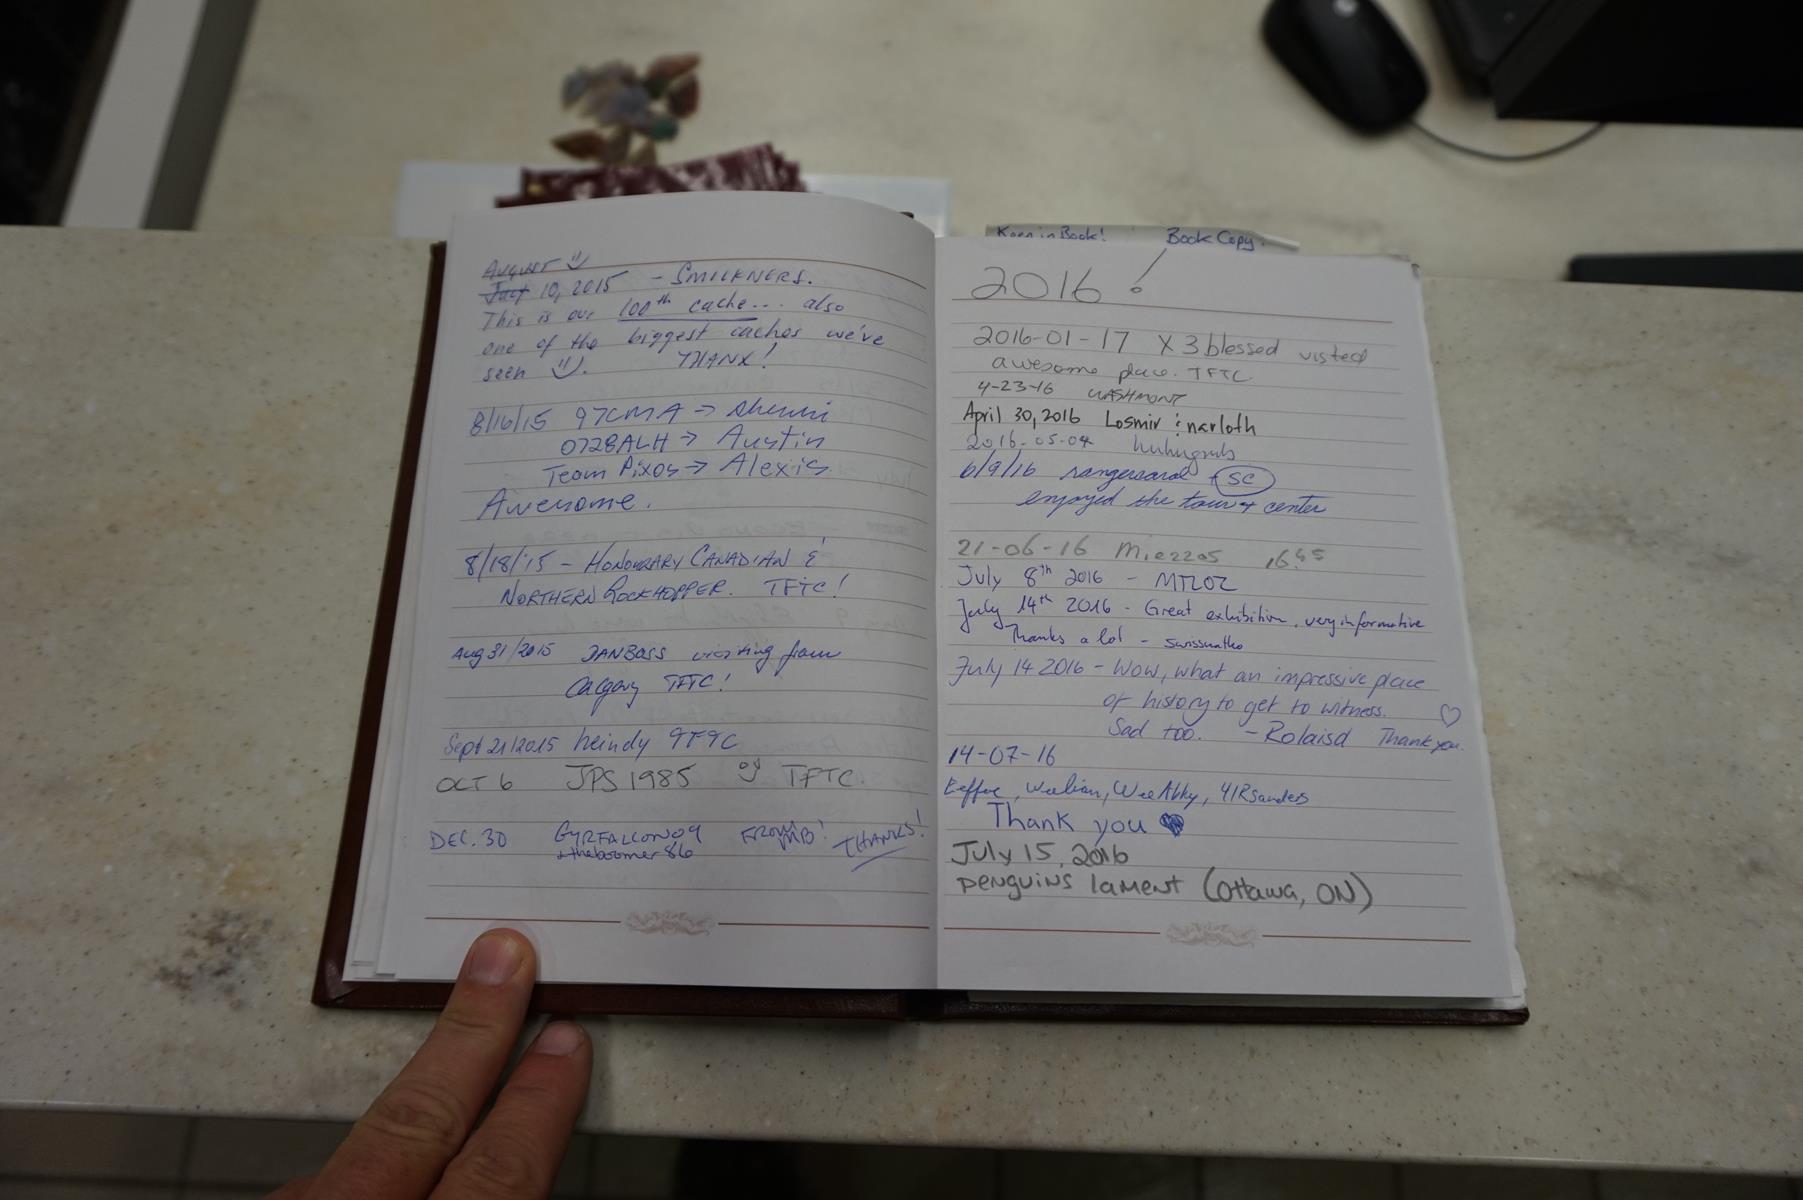 August
July 10, 2015 - SMILKNERS.
This is our 100th cache... also
one of the biggest caches we've
seen THANX!
8/16/15 97CMA → Sherri
0728ALH → Austin
Team Pixos → Alexis
Awesome.
8/18/15 - HONOURARY CANADIAN &
NORTHERN ROCKHOPPER. TFTC!
Aug 31/2015 DANBASS visiting from
Calgary TFTC!
Sept 21/2015 heindy TFTC
OCT 6 JPS1985 TFTC
DEC. 30 GYRFALCON09 FROM MB! THANKS!
+theboomer86
Keep in Book! Book Copy.
2016
2016-01-17 X3blessed visted
awesome place. TFTC
4-23-16 WASHMONT
April 30, 2016 Losmir & narloth
2016-05-04
6/9/16 rangersarol SC
enjoyed the tour + center
21-06-16 Miezzos 16:45
July 8th 2016 - MTLOZ
July 14th 2016 - Great exhibition, very informative
Thanks a lot -
July 14 2016 - Wow, what an impressive place
of history to get to witness.
Sad too. - Rolaisd Thank you.
14-07-16
Keffee, WeeAbby, 41RSanders
Thank you
July 15, 2016
penguins lament (Ottawa, ON)